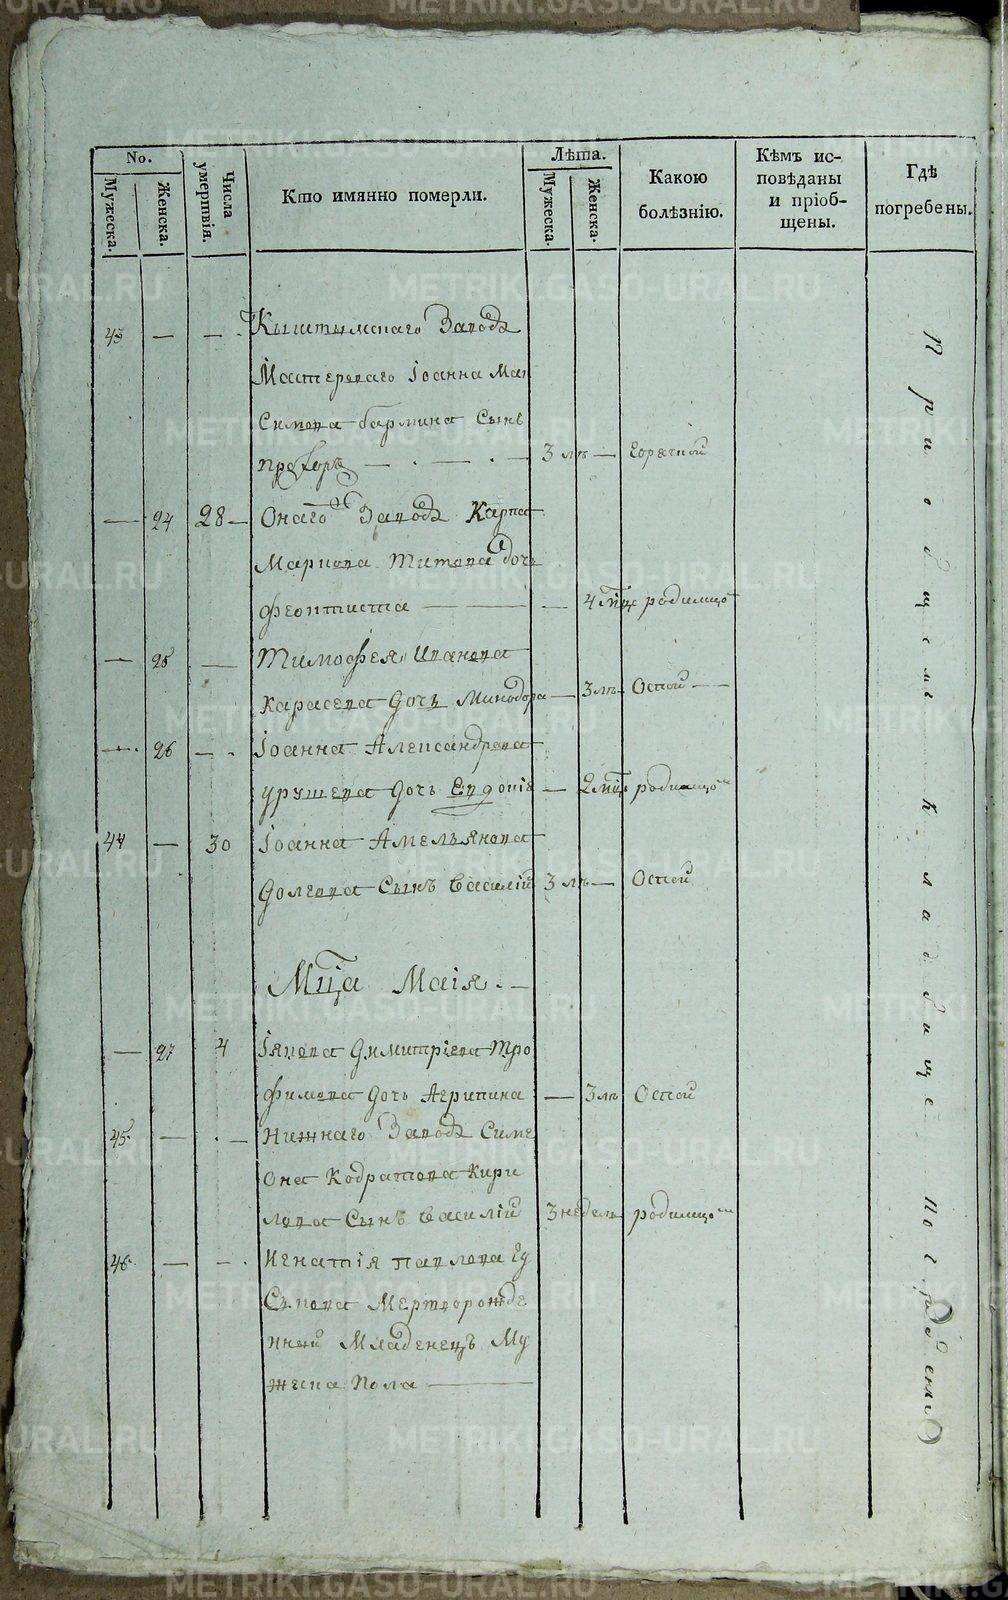 No.
Мужеска.
Женска.
Числа умертвія.
Кто имянно померли.
Лѣта.
Мужеска.
Женска.
Какою болѣзнію.
Кѣмъ исповѣданы и пріобщены.
Гдѣ погребены.
43 — — Кыштымскаго Завода
Мастероваго Іоанна Мак
симова бармина Сынъ
прохоръ — — — 3 лѣ — горячкой
— 24 28 — Онаго Завода Карпа
Маркова Титова дочь
феоктиста — — 4 мц родимцо
— 25 — Тимофея Иванова
Карасева дочь Минодора — 3 лѣ Оспой —
— 26 — Іоанна Александрова
урушева дочь Евдокія — 2 мц родимцо
44 — 30 Іоанна Амельянова
Долгова Сынъ василій 3 лѣ — Оспой
Мц҃а Маія. —
— 27 4 Іякова Димитріева Тро
фимова дочь Агрипина — 3 лѣ Оспой
45 — — Нижнаго Завода Симе
она Кодратова Кири
лова Сынъ василій 3 недель родимцо
46 — — Игнатія павлова Ев
Мертворожде
нный Младенецъ Му
жеска Пола —
При общемъ кладбище погребены
METRIKI.GASO-URAL.RU